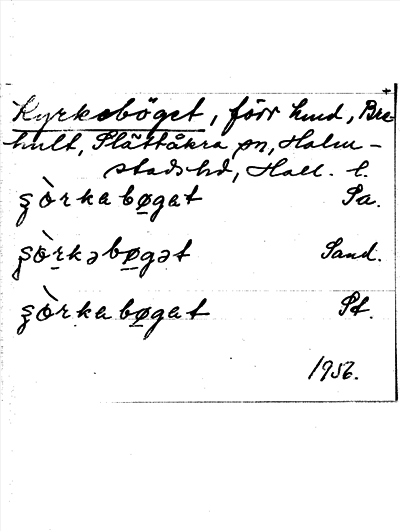 Kyrkebøget, förr hmd, Bre-
hult, Slättåkra sn, Halm-
stads hd, Hall. l.
ʂò̀rkabøgat Sa.
ʂòrkəbøgət Sand.
ʂòrkabøgat Pt.
1956.